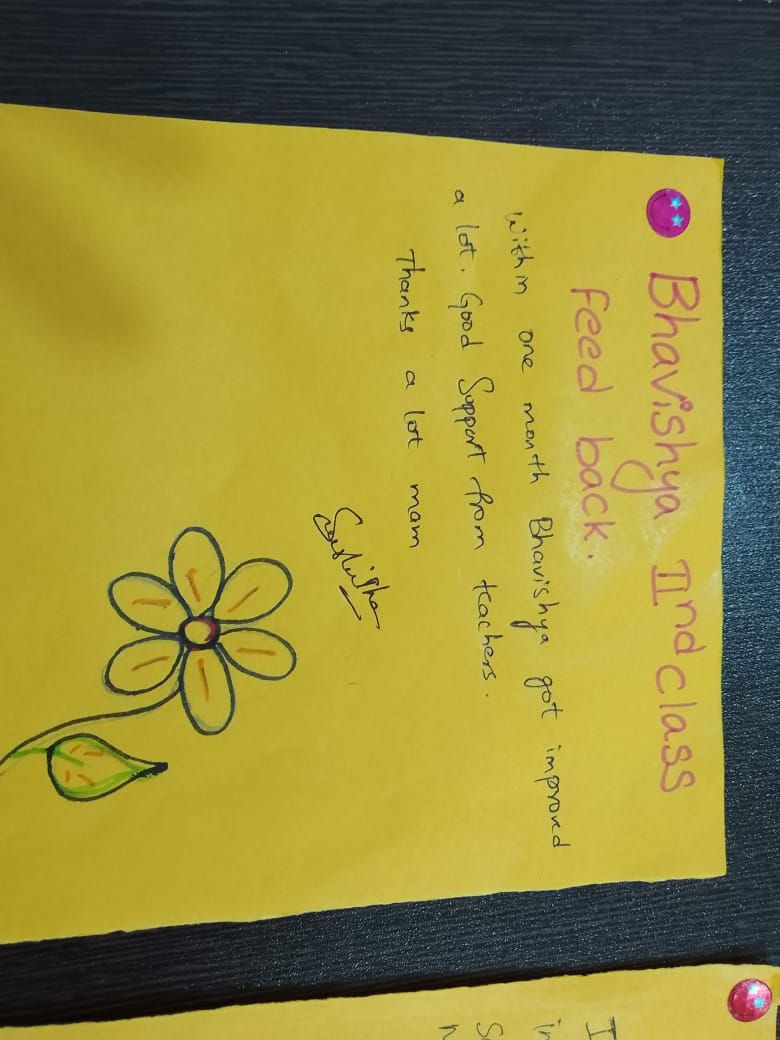 Bhavishya IInd class
Feed back.
Within one month Bhavishya got improved
a lot. Good Support from teachers.
Thanks a lot mam
I
in